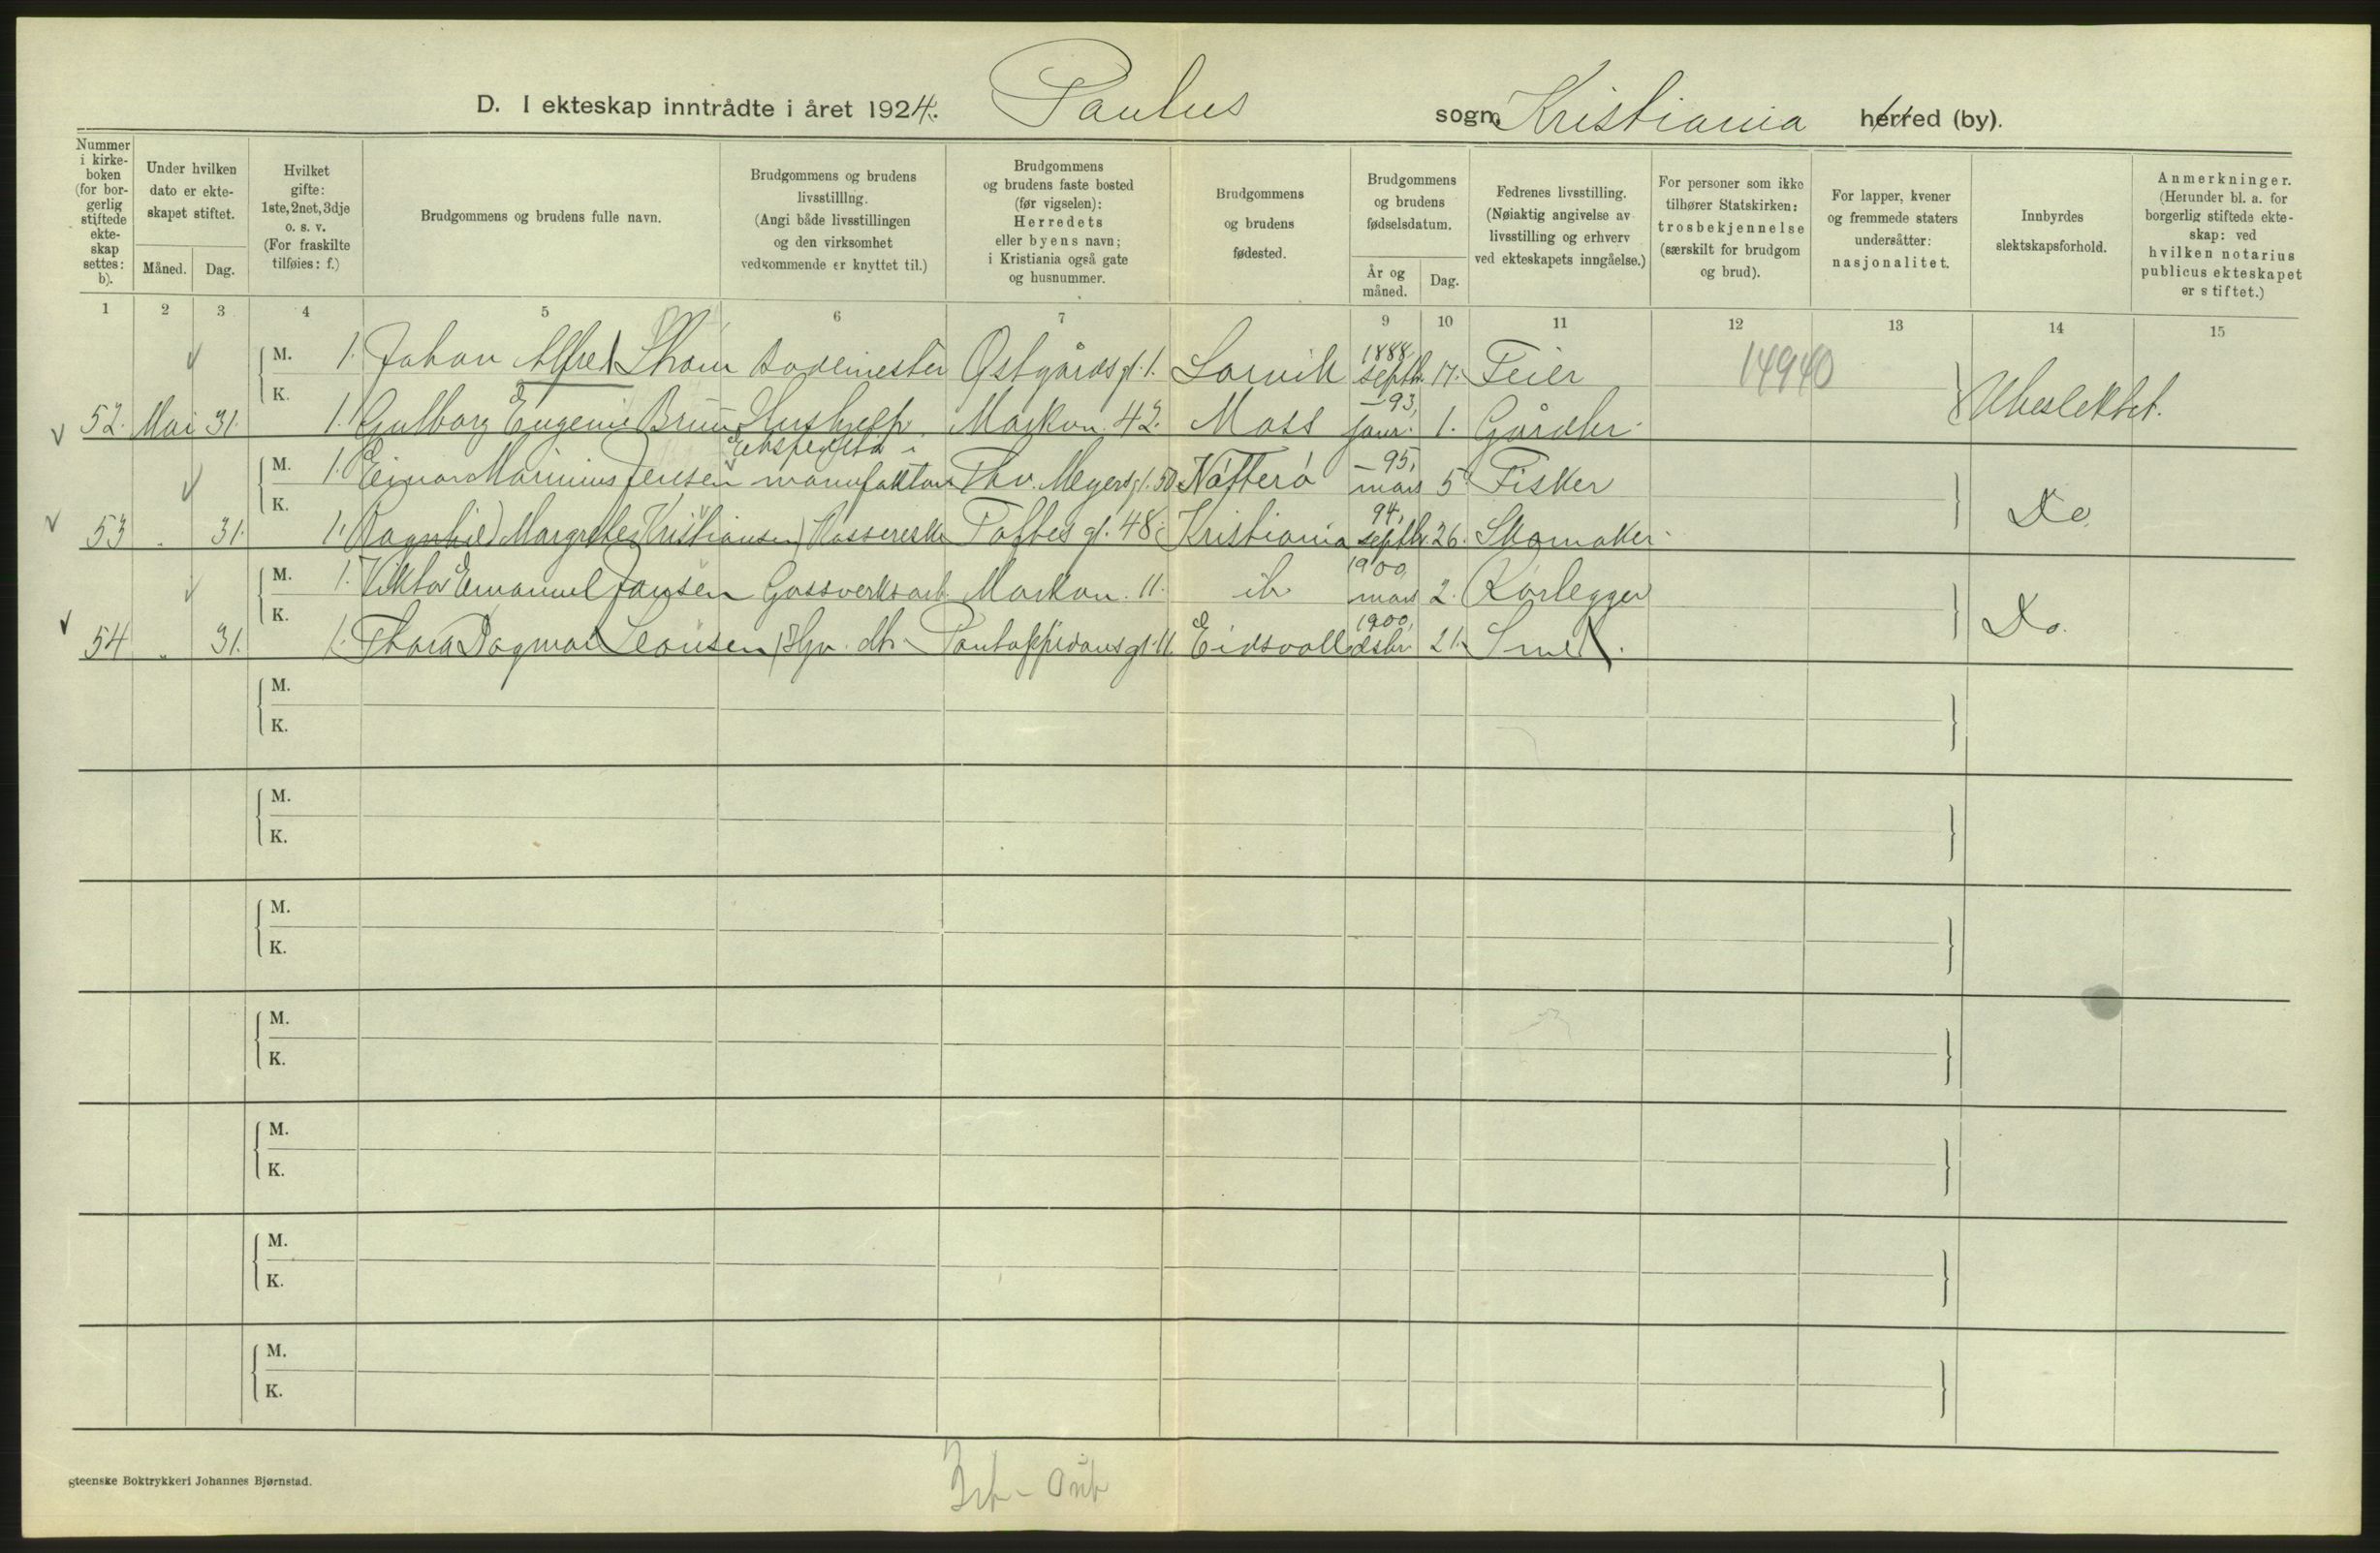 D. I ekteskap inntrådte i året 1924. Paulus sogn, Kristiania herred (by).
Nummer i kirkeboken (for borgerlig stiftede ekteskap settes: b).
Under hvilken dato er ekteskapet stiftet.
Måned. Dag.
Hvilket gifte: 1ste, 2net, 3dje o. s. v. (For fraskilte tilføies: f.)
Brudgommens og brudens fulle navn.
Brudgommens og brudens livsstilllng. (Angi både livsstillingen og den virksomhet vedkommende er knyttet til.)
Brudgommens og brudens faste bosted (før vigselen): Herredets eller byens navn; i Kristiania også gate og husnummer.
Brudgommens og brudens fødested.
Brudgommens og brudens fødselsdatum.
År og måned. Dag.
Fedrenes livsstilling. (Nøiaktig angivelse av livsstilling og erhverv ved ekteskapets inngåelse.)
For personer som ikke tilhører Statskirken: trosbekjennelse (særskilt for brudgom og brud).
For lapper, kvener og fremmede staters undersåtter: nasjonalitet.
Innbyrdes slektskapsforhold.
Anmerkninger. (Herunder bl. a. for borgerlig stiftede ekteskap: ved hvilken notarius publicus ekteskapet er stiftet.)
1 2 3 4 5 6 7 9 10 11 12 13 14 15
M. 1. Johan Alfred Bademester Østgårds gt. 1. Larvik 1888, septbr. 17. Feier 14940
52. Mai 31. K. 1. Gulborg Eugenie Bruu Hushjelp. Markvn. 42. Moss - 93, janr. 1. Gårdbr. Ubeslektet.
M. 1. Einar Marinius Jensen Ekspeditør i manufaktur Thv. Meyers gt. 50 Nøtterø - 95, mars 5. Fisker
53 " 31. K. 1. Ragnhild Margrethe Kristiansen Kassererske Toftes gt. 48. Kristiania 94, septbr. 26. Skomaker. Do.
M. 1. Viktor Emanuel Jansen Gassverksarb. Markvn. 11. ib 1900, mars 2. Rørlegger
54 " 31. K. 1. Thora Dagmar 11. Eidsvoll 1900, dsbr. 21. Smed. Do.
M.
K.
M.
K.
M.
K.
M.
K.
M.
K.
M.
K.
M.
K.
gteenske Boktrykkeri Johannes Bjørnstad.